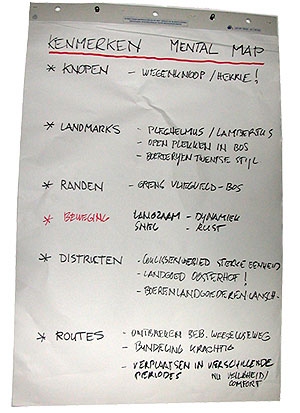 KENMERKEN MENTAL MAP
* KNOPEN - WEGENKNOOP / HEKKIE!
* LANDMARKS - PLECHELMUS / LAMBERTUS
- OPEN PLEKKEN IN BOS
- BOERDERIJEN TWENTSE STIJL
* RANDEN - GRENS VLIEGVELD - BOS
* BEWEGING LANGZAAM - DYNAMIEK
SNEL - RUST
* DISTRICTEN - STERKE EENHEID
- LANDGOED OOSTERHOF!
- BOERENLANDGOEDEREN
* ROUTES - ONTBREKEN BEB. WEERSELOSEWEG
- BUNDELING KRACHTIG
- VERPLAATSEN IN VERSCHILLENDE
PERIODES NU VEILIGHEID/
COMFORT